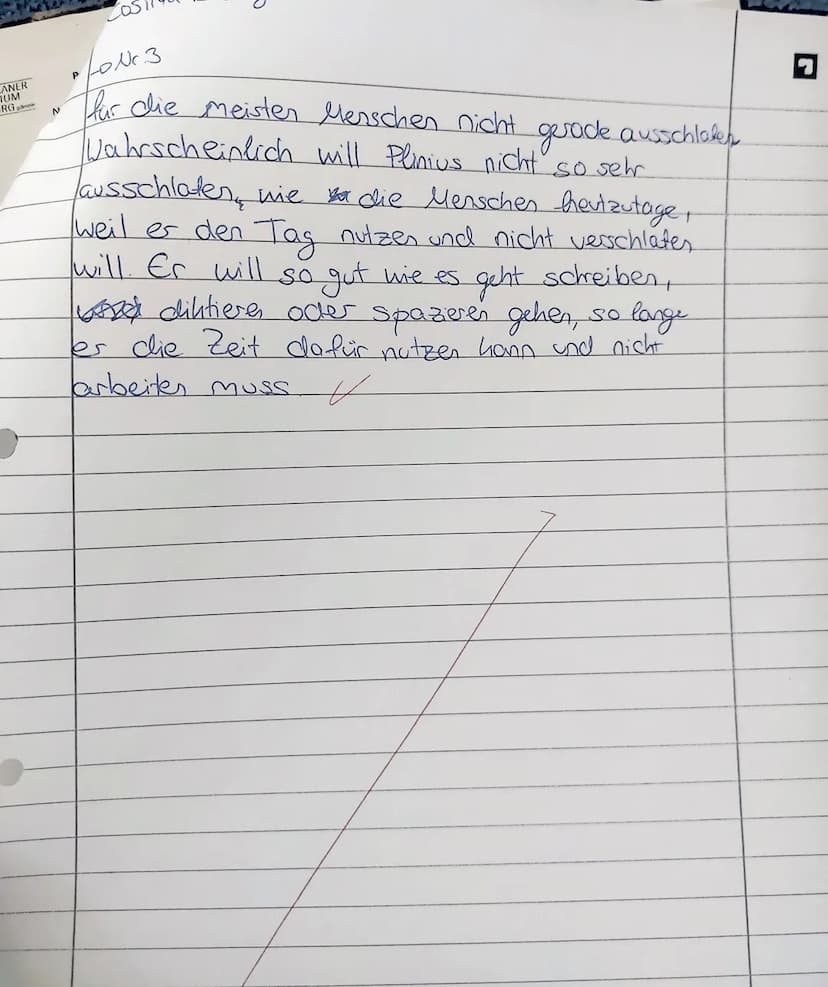 Nr. 3
ANER
IUM
RG
P
N
für die meisten Menschen nicht gerade ausschlafen
Wahrscheinlich will Plinius nicht so sehr
ausschlafen, wie die Menschen heutzutage,
weil er den Tag nutzen und nicht verschlafen
will. Er will so gut wie es geht schreiben,
diktieren oder spazieren gehen, so lange
er die Zeit dafür nutzen kann und nicht
arbeiten muss